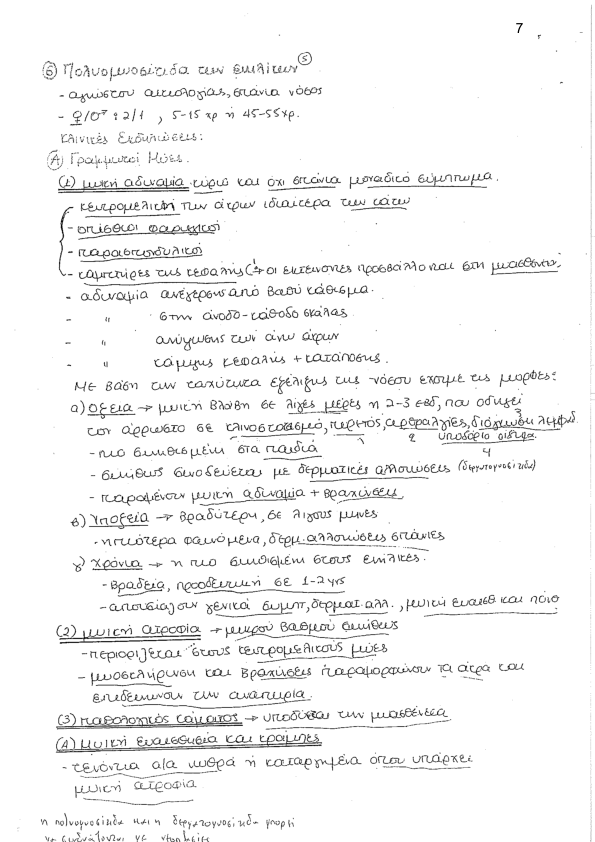 7
⑥ Πολυομυοσίτιδα των ενηλίκων ⑤
- αγνώστου αιτιολογίας, σπάνια νόσος
- ♀/♂ : 2/1 , 5-15 χρ ή 45-55χρ.
Κλινικές Εκδηλώσεις:
Ⓐ Γραμμωτοί Μύες.
(1) μυική αδυναμία κύριο και όχι σπάνια μοναδικό σύμπτωμα.
- κεντρομελική των άκρων ιδιαίτερα των κάτω
- οπίσθιοι φαρυγγικοί
- παρασπονδυλικοί
- καμπτήρες της κεφαλής (↔ οι εκτείνοντες προσβάλλονται στη μυασθένεια)
- αδυναμία ανέγερσης από βαθύ κάθισμα.
- " στην άνοδο-κάθοδο σκάλας
- " ανύψωσης των άνω άκρων
- " κάμψης κεφαλής + κατάποσης.
Με βάση την ταχύτητα εξέλιξης της νόσου έχουμε τις μορφές:
α) Οξεία → μυική βλάβη σε λίγες μέρες ή 2-3 εβδ, που οδηγεί
τον άρρωστο σε κλινοστατισμό, πυρετός, αρθραλγίες, διόγκωση λεμφαδ.
1 2 υποδόριο οίδημα 3
4
- πιο συνηθισμένη στα παιδιά
- συνήθως συνοδεύεται με δερματικές αλλοιώσεις (δερματομυοσίτιδα)
- παραμένουν μυική αδυναμία + βραχύνσεις
β) Υποξεία → βραδύτερη, σε λίγους μήνες
- ηπιότερα φαινόμενα, δερμ. αλλοιώσεις σπάνιες
γ) Χρόνια → η πιο συνηθισμένη στους ενήλικες.
- βραδεία, προοδευτική σε 1-2 χρ
- απουσιάζουν γενικά συμπτ, δερματ. αλλ., μυική ευαισθ και πόνο
(2) μυική ατροφία → μικρού βαθμού συνήθως
- περιορίζεται στους κεντρομελικούς μύες
- μυοσκλήρυνση και βραχύνσεις παραμορφώνουν τα άκρα και
επιδεινώνουν την αναπηρία.
(3) παθολογικός κάματος → υποδύεται την μυασθένεια
(4) Μυική ευαισθησία και κράμπες
- τενόντια α/α νωθρά ή καταργημένα όπου υπάρχει
μυική ατροφία
η πολυομυοσίτιδα και η δερματομυοσίτιδα μπορεί
να συνδυάζονται με